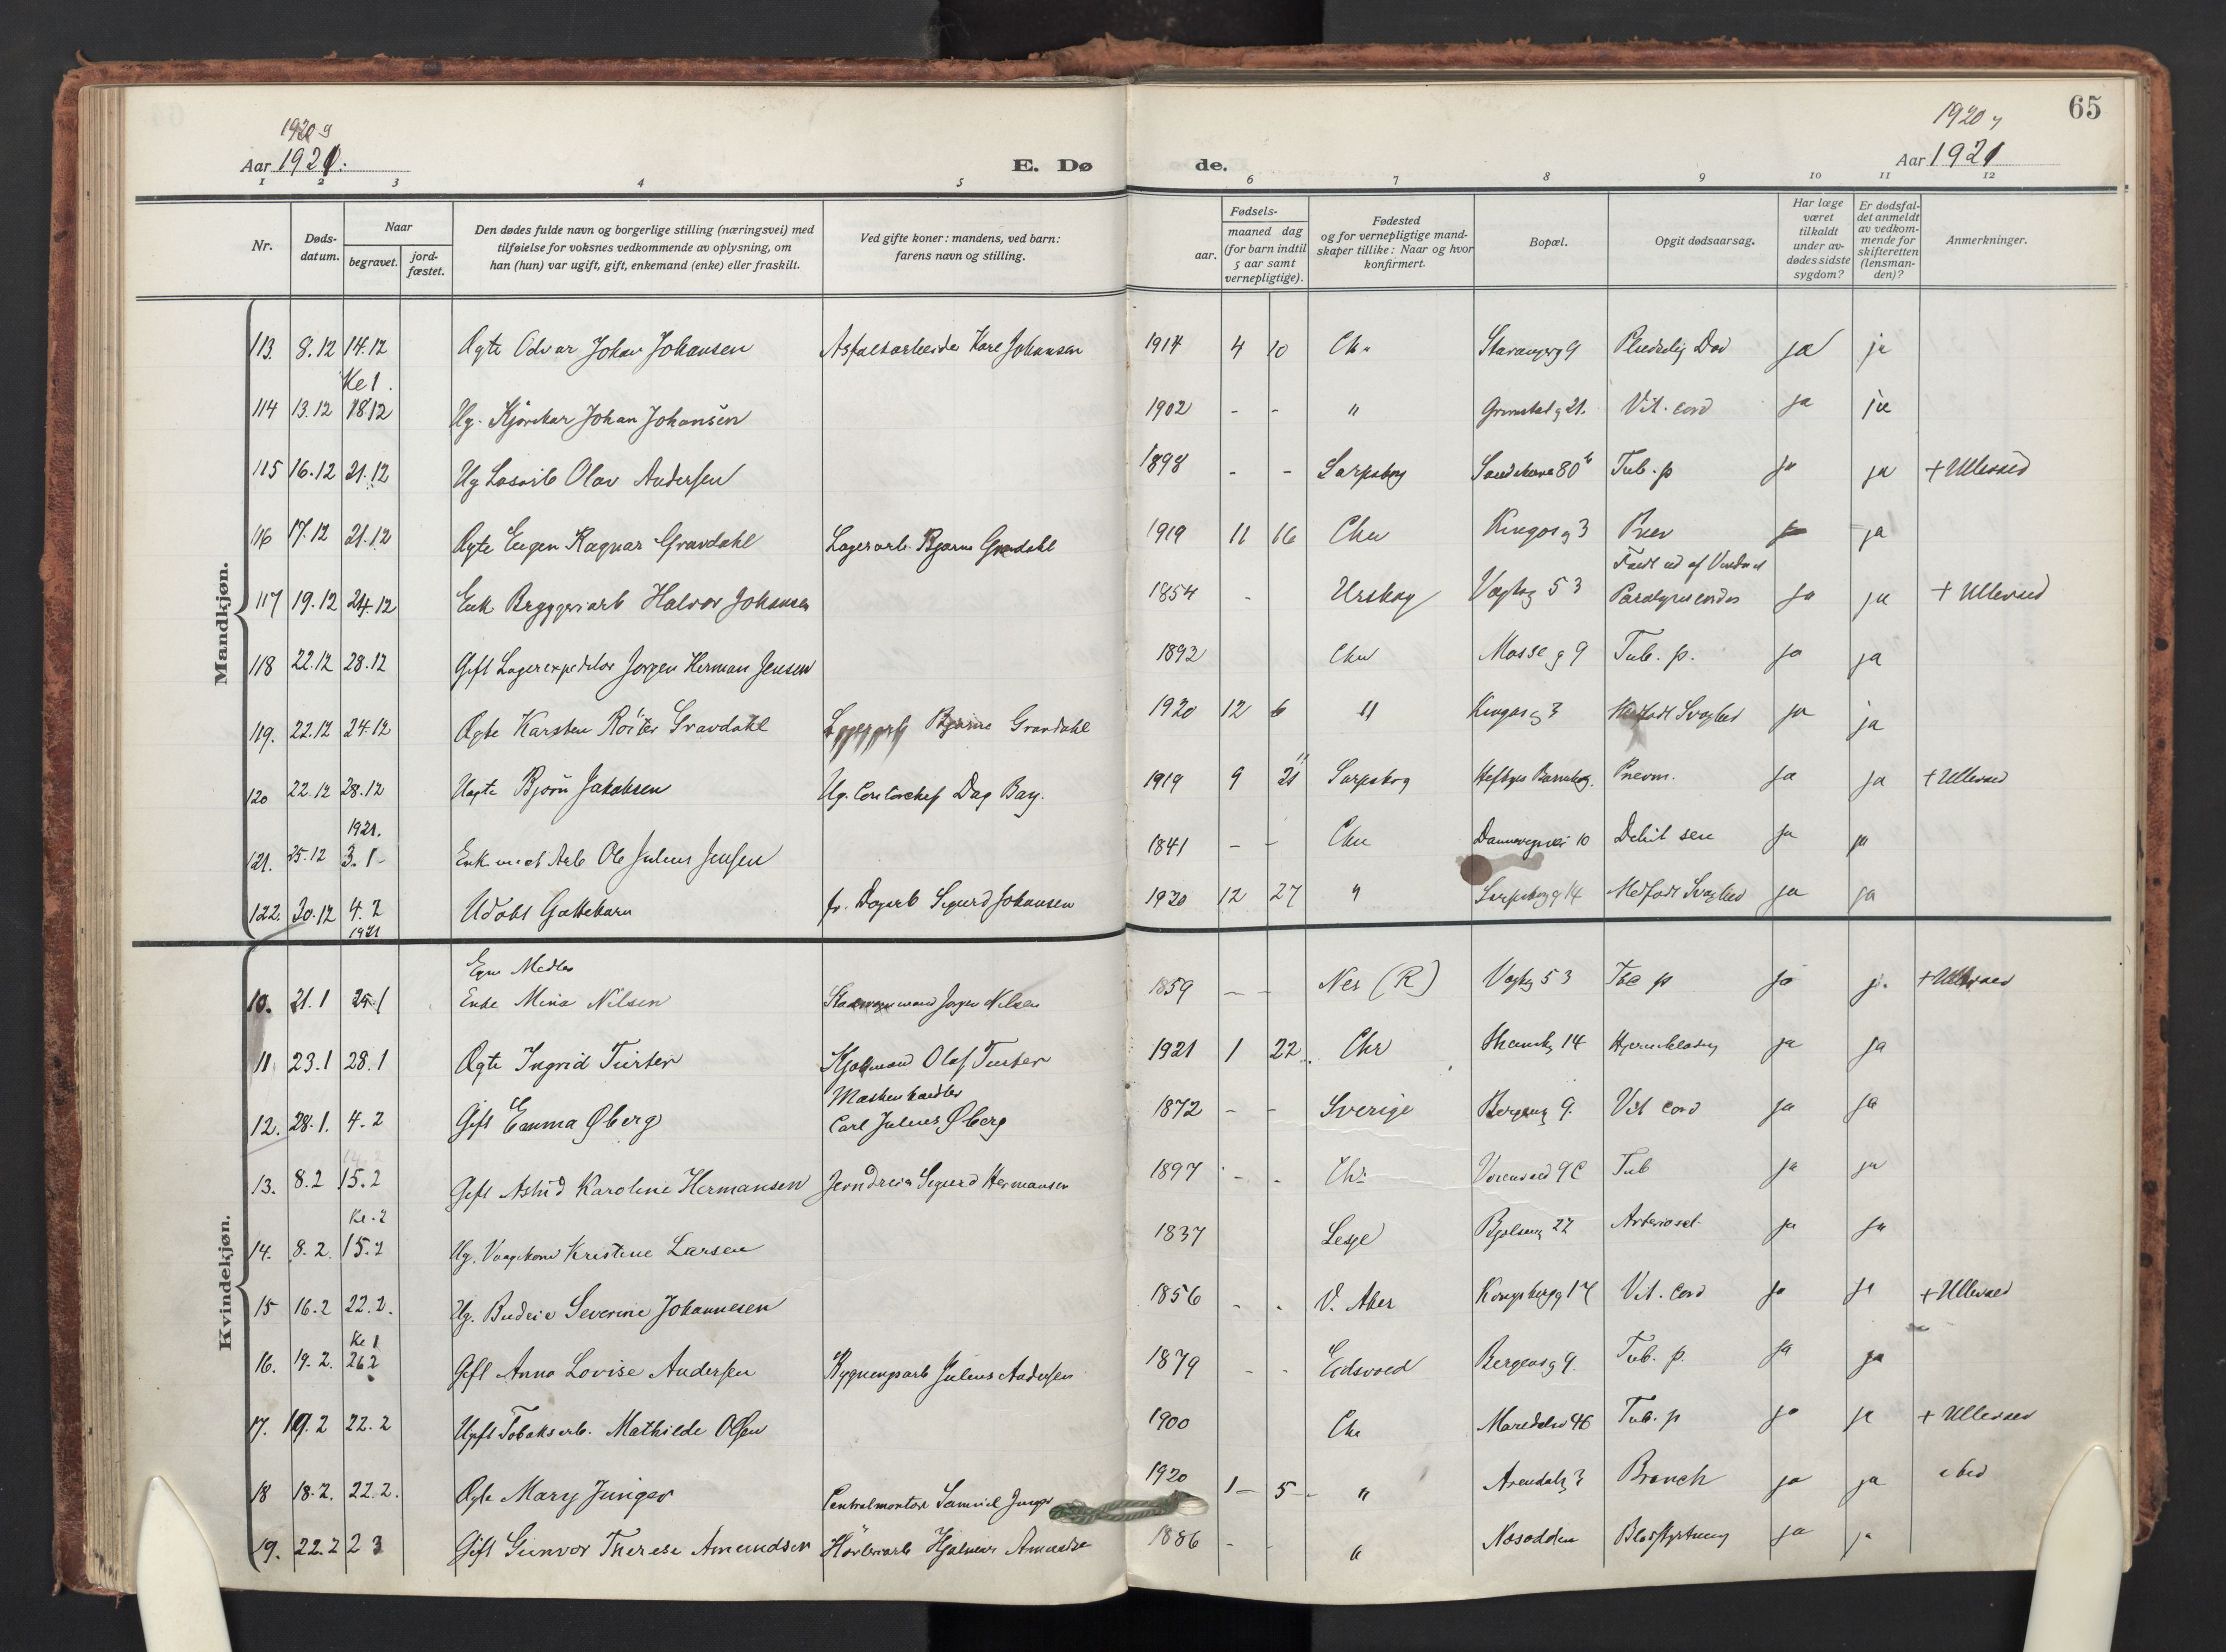 65
1920 og
1920 og
Aar 1921.
E. Dø
de.
Aar 1921
1 2 3 4 5 6 7 8 9 10 11 12
Nr.
Døds-datum.
Naar
begravet.
jord-fæstet.
Den dødes fulde navn og borgerlige stilling (næringsvei) med
tilføielse for voksnes vedkommende av oplysning, om
han (hun) var ugift, gift, enkemand (enke) eller fraskilt.
Ved gifte koner: mandens, ved barn:
farens navn og stilling.
Fødsels-
aar.
maaned dag
(for barn indtil
5 aar samt
vernepligtige).
Fødested
og for vernepligtige mand-
skaper tillike: Naar og hvor
konfirmert.
Bopæl.
Opgit dødsaarsag.
Har læge
været
tilkaldt
under av-
dødes sidste
sygdom?
Er dødsfal-
det anmeldt
av vedkom-
mende for
skifteretten
(lensman-
den)?
Anmerkninger.
Mandkjøn.
113. 8.12 14.12 Ægte Odvar Johan Johansen Asfaltarbeider Karl Johansen 1914 4 10 Chr. Stavangerg 9 Pludselig Død ja ja
Ke 1.
114 13.12 18.12 Ug. Kjørekar Johan Johansen 1902 - - " Grimstadg 21. Vit. cord ja ja
115 16.12 21.12 Ug Løsarb Olav Andersen 1898 - - Sarpsborg 80 b Tub. p ja ja + Ullevaal
116 17.12 21.12 Ægte Eugen Ragnar Gravdahl Lagerarb. Bjarne Gravdahl 1919 11 16 Chr Kingosg 3 Pnev ja ja
Faldt ud af Vinduet
117 19.12 24.12 Enk Bryggeriarb Halvor Johansen 1854 - Urskog Vogtsg 53 Paralysis cordis ja ja + Ullevaal
118 22.12 28.12 Gift Lagerexpeditør Jørgen Herman Jensen 1892 Chr Mosseg 9 Tub. p. ja ja
119. 22.12 24.12 Ægte Karsten Gravdahl Lagerarb Bjarne Gravdahl 1920 12 6 " Kingosg 3 Medfødt Svaghed ja ja
120 22.12 28.12 Uægte Bjørn Jakobsen Ug. Kontorchef Dag Bay. 1919 9 21 Sarpsborg Pnevm. ja ja + Ullevaal
1921.
121. 25.12 3.1 Enkemd Arb Ole Julius Jensen 1841 - - Chr Dannevigsvei 10 Debil sen ja ja
122. 30.12 4.2 Udøbt Guttebarn fr. Dagarb Sigurd Johansen 1920 12 27 " Sarpsborgg 14 Medfødt Svaghed ja ja
1921
Kvindekjøn.
10. 21.1 25.1 Enke Mina Nilsen Jørgen Nilsen 1859 - - Nes (R) Vogtsg 53 Tbc p ja ja + Ullevaal
11 23.1 28.1 Ægte Ingrid Turter Olaf Turter 1921 1 22 Chr 14 Hjerneblødning ja ja
12. 28.1. 4.2 Gift Emma Øberg Carl Julius Øberg 1872 - - Sverige Bergensg 9. Vit cord ja ja
13. 8.2 15.2 Gift Astrid Karoline Hermansen Jerndreier Sigurd Hermansen 1897 - - Chr. 9C Tub ja ja
Ke.2
14. 8.2. 15.2 Ug. Vaagekone Kristine Larsen 1837 Lesje Bjølseng 22 Arterioscl. ja ja
15 16.2 22.2. Ug. Budeie Severine Johannesen 1856 - - V. Aker Kongsbergg 17 Vit. Cord ja ja + Ullevaal
Ke 1
16. 19.2. 26.2 Gift Anna Lovise Andersen Bygningsarb Julius Andersen 1879 - - Eidsvold Bergensg 9. Tub. p. ja ja
17. 19.2 22.2 Ugift Tobaksarb. Mathilde Olsen 1900 Chr Maridalsv 46 Tub. p ja ja + Ullevaal
18 18.2. 22.2. Ægte Mary Junger Centralmontør Samuel Junger 1920 1 - 5 - " Arendalsg 3 Bronch ja ja
19. 22.2 2 3 Gift Gunvor Therese Amundsen Høvleriarb Hjalmar Amundsen 1886 - - " Nesodden Blodstyrtning ja ja